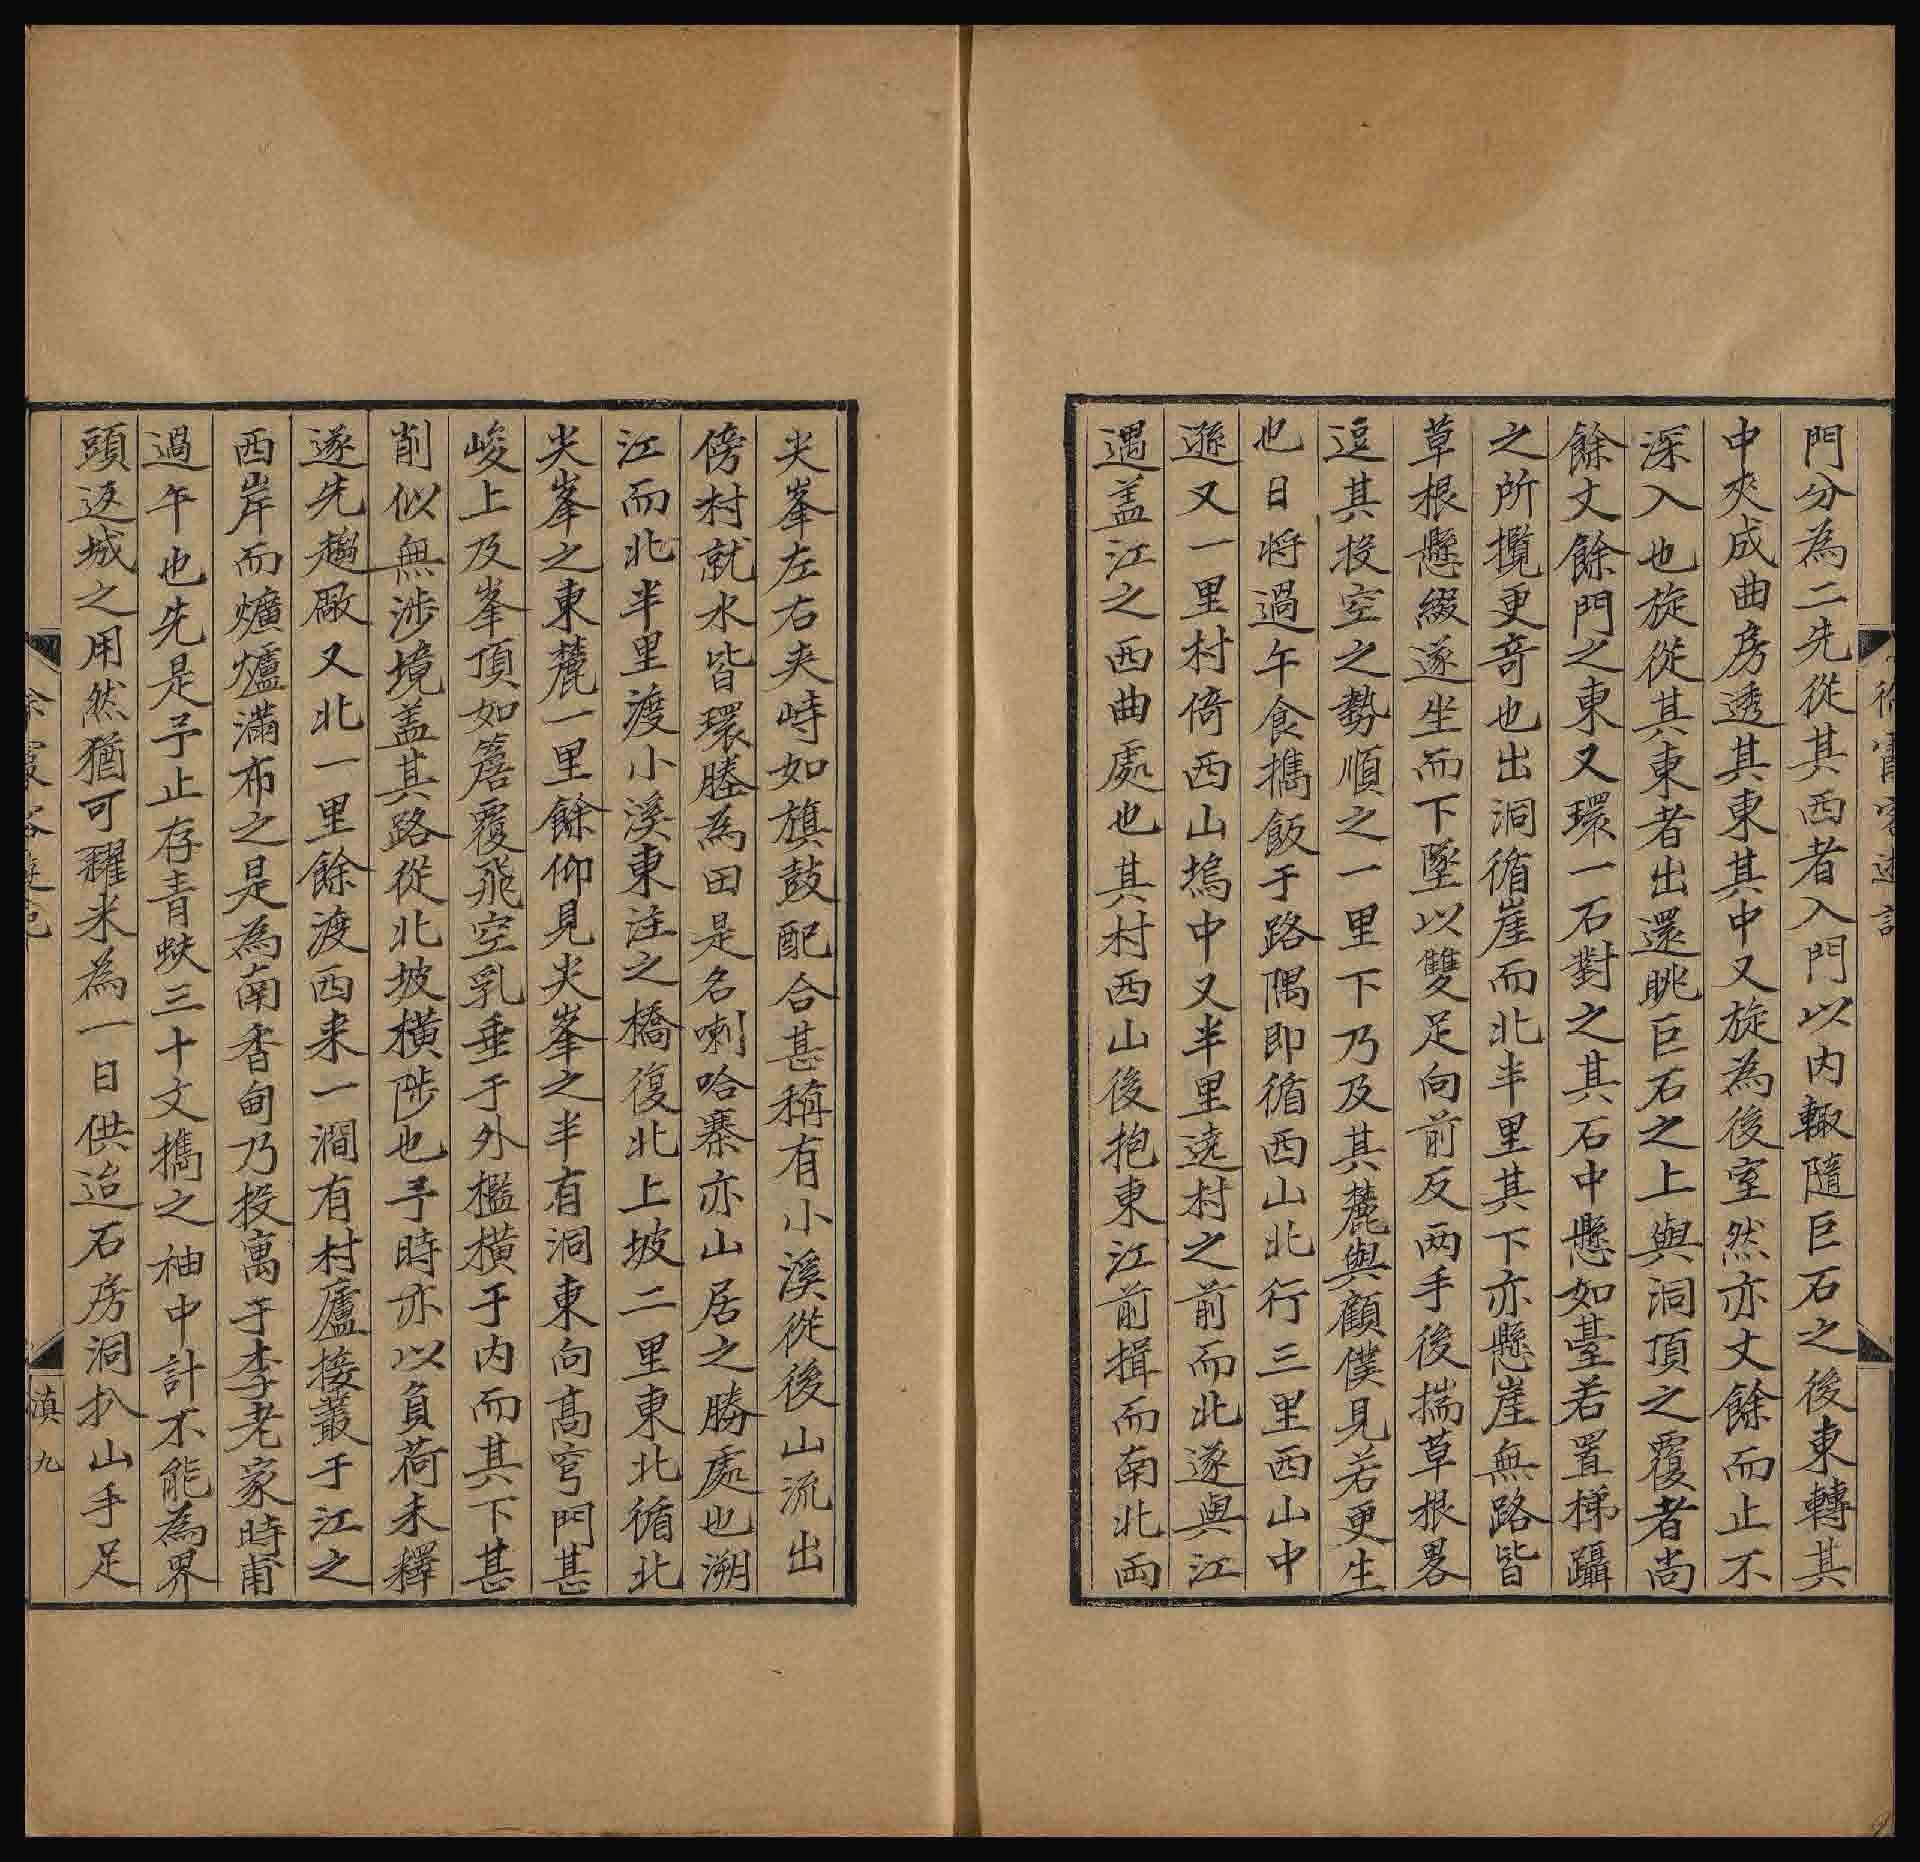 徐霞客遊記
門分為二先從其西者入門以内輙隨巨石之後東轉其
中夾成曲房透其東其中又旋為後室然亦丈餘而止不
深入也旋從其東者出還眺巨石之上與洞頂之覆者尚
餘丈餘門之東又環一石對之其石中懸如臺若置梯躡
之所攬更竒也出洞循崖而北半里其下亦懸崖無路皆
草根懸綴遂坐而下墜以雙足向前反两手後揣草根畧
逗其投空之勢順之一里下乃及其麓與顧僕見若更生
也日将過午食攜飯于路隅即循西山北行三里西山中
遜又一里村倚西山塢中又半里遶村之前而北遂與江
遇盖江之西曲處也其村西山後抱東江前揖而南北両
尖峯左右夾峙如旗鼓配合甚稱有小溪從後山流出
傍村就水皆環塍為田是名喇哈寨亦山居之勝處也溯
江而北半里渡小溪東注之橋復北上坡二里東北循北
尖峯之東麓一里餘仰見尖峯之半有洞東向高穹門甚
峻上及峯頂如簷覆飛空乳垂于外檻橫于内而其下甚
削似無涉境盖其路從北坡橫陟也予時亦以負荷未釋
遂先趨厰又北一里餘渡西来一澗有村廬接叢于江之
西岸而爌爐滿布之是為南香甸乃投寓于李老家時甫
過午也先是予止存青蚨三十文攜之袖中計不能為界
頭返城之用然猶可糴米為一日供迨石房洞扒山手足
徐霞客遊記
滇九